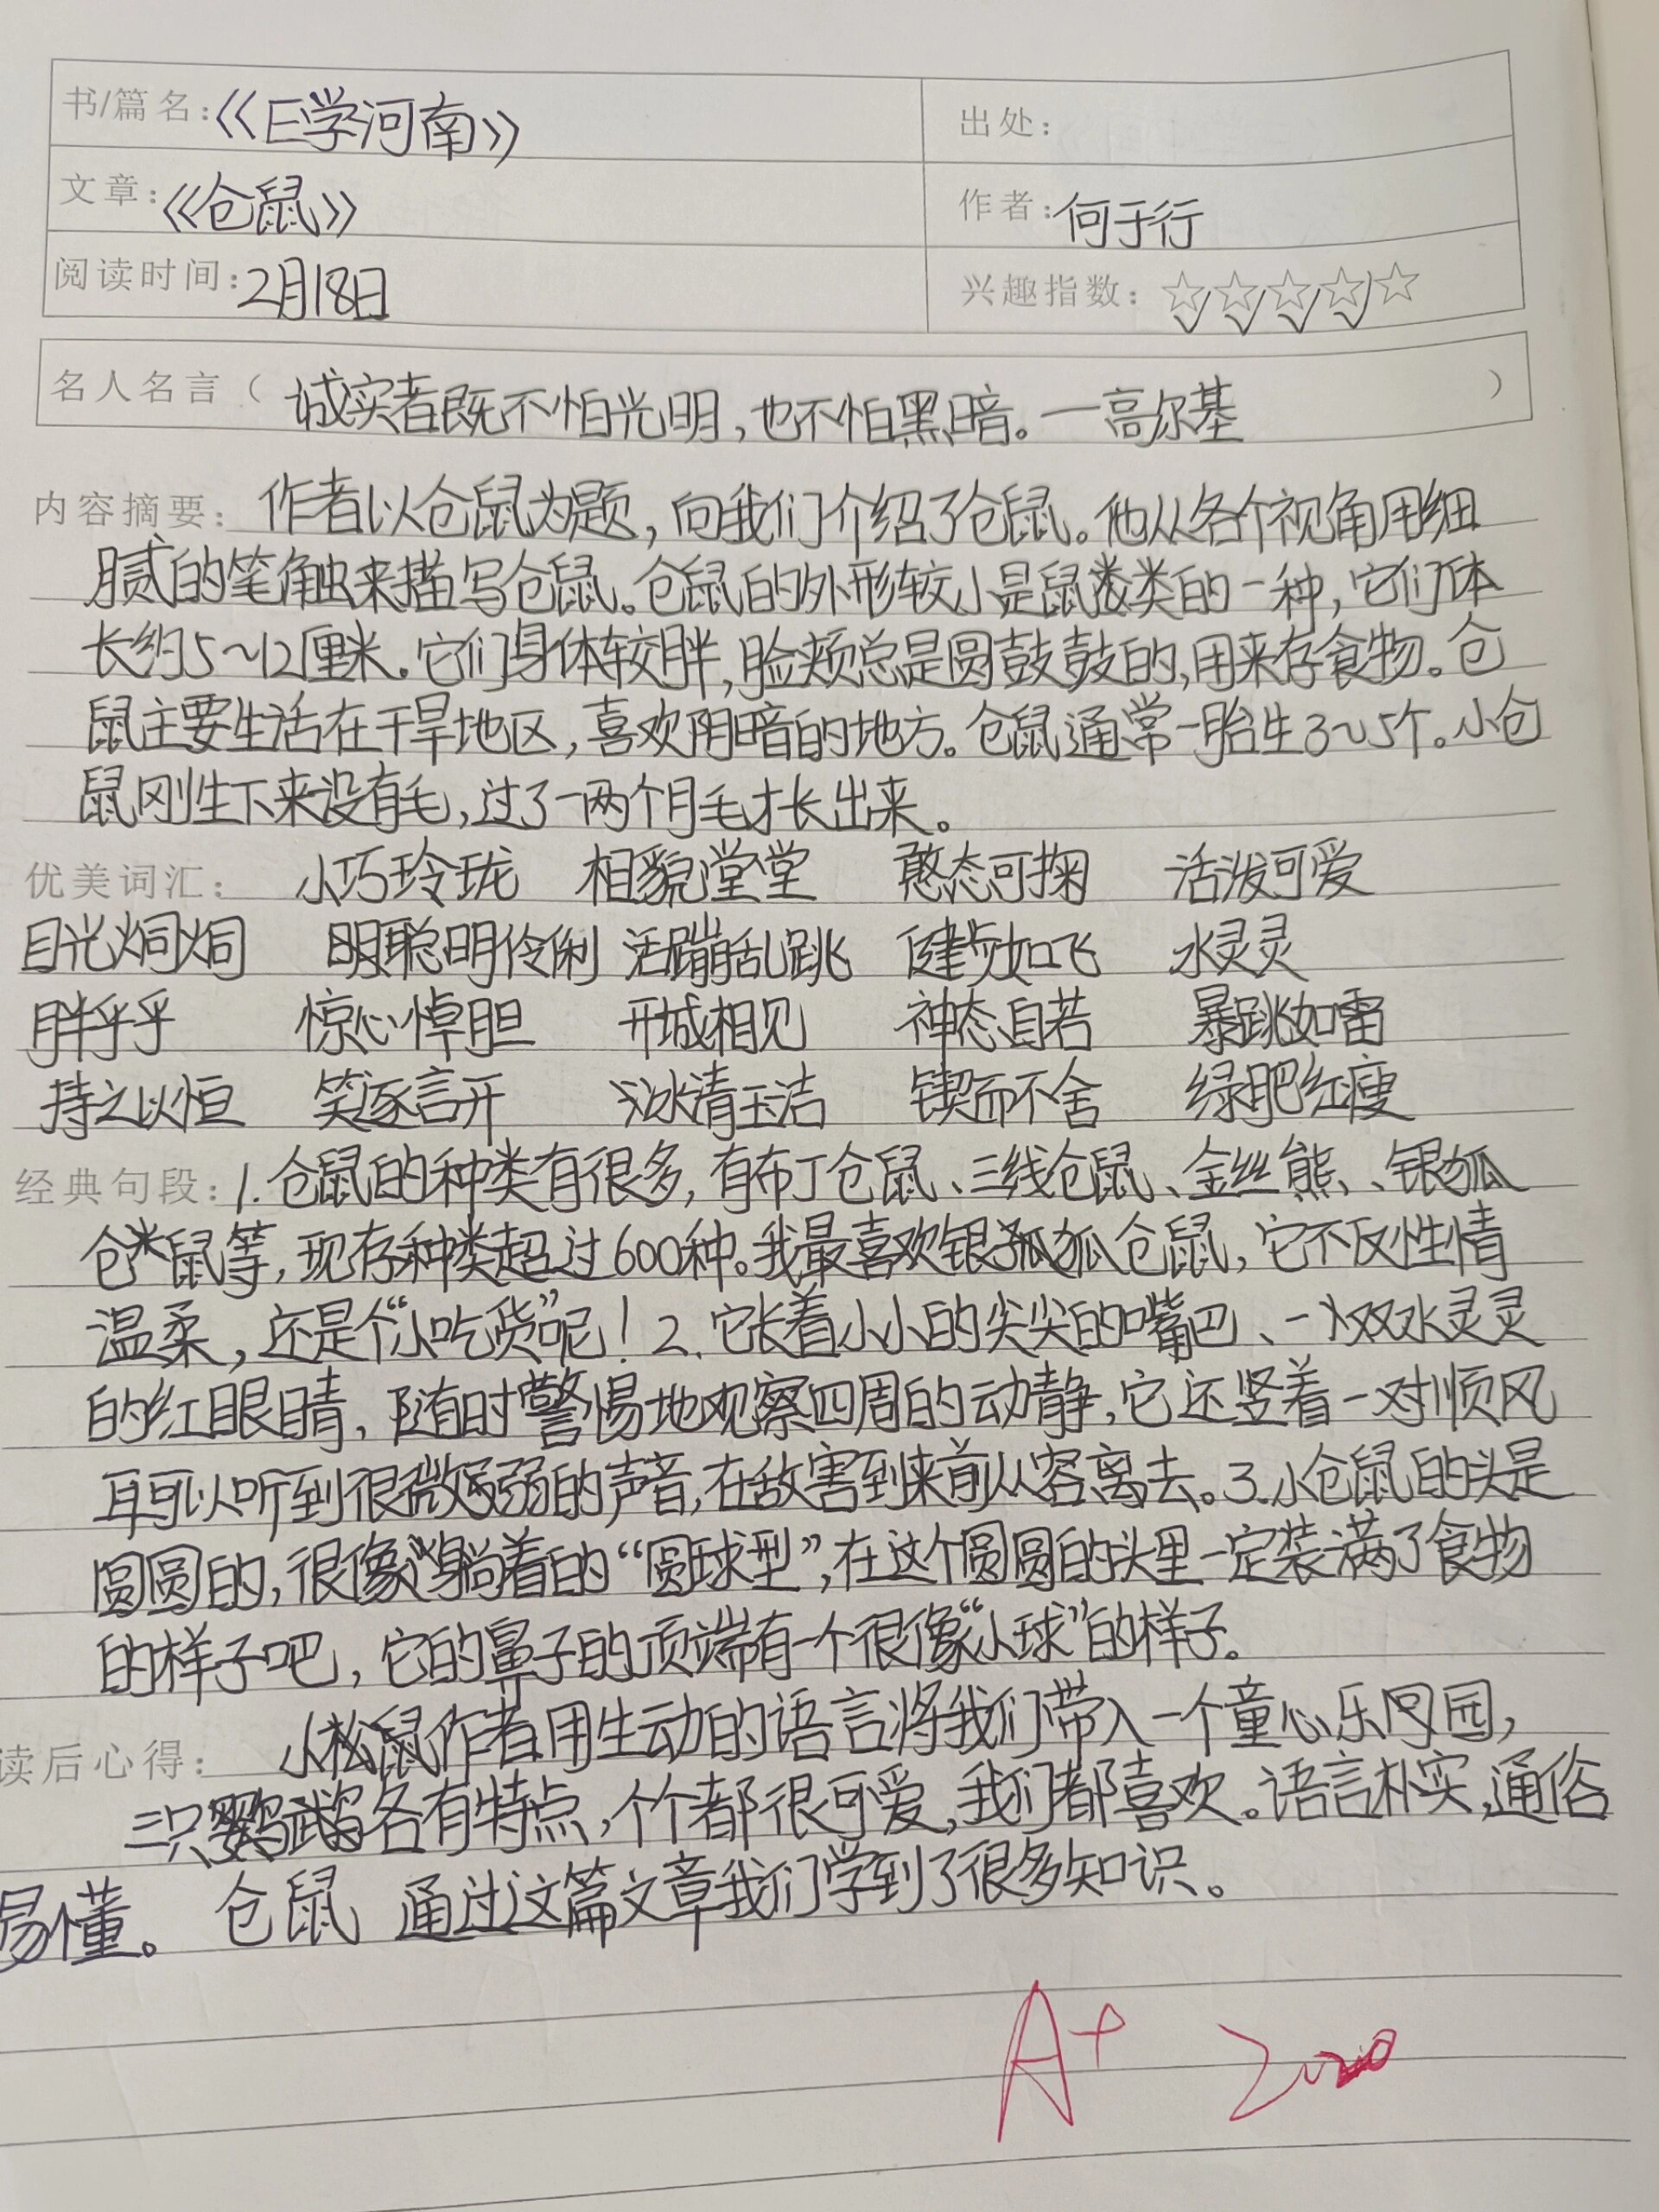 书/篇名:《E学河南》 出处:
文章:《仓鼠》 作者:何于行
阅读时间:2月18日 兴趣指数:☆☆☆☆☆
名人名言( 诚实者既不怕光明,也不怕黑暗。—高尔基 )
内容摘要: 作者以仓鼠为题,向我们介绍了仓鼠。他从各个视角用细
腻的笔触来描写仓鼠。仓鼠的外形较小是鼠类的一种,它们体
长约5~12厘米.它们身体较胖,脸颊总是圆鼓鼓的,用来存食物。仓
鼠主要生活在干旱地区,喜欢阴暗的地方。仓鼠通常一胎生3~5个。小仓
鼠刚生下来没有毛,过了一两个月毛才长出来。
优美词汇: 小巧玲珑 相貌堂堂 憨态可掬 活泼可爱
目光炯炯 聪明伶俐 活蹦乱跳 健步如飞 水灵灵
胖乎乎 惊心悼胆 开城相见 神态自若 暴跳如雷
持之以恒 笑逐言开 冰清玉洁 锲而不舍 绿肥红瘦
经典句段:1.仓鼠的种类有很多,有布丁仓鼠、三线仓鼠、金丝熊、、银狐
仓鼠等,现存种类超过600种。我最喜欢银狐仓鼠,它不仅性情
温柔,还是个“小吃货”呢!2.它长着小小的尖尖的嘴巴、一双水灵灵
的红眼睛,随时警惕地观察四周的动静,它还竖着一对顺风
耳可以听到很微弱的声音,在敌害到来前从容离去。3.小仓鼠的头是
圆圆的,很像躺着的“圆球型”,在这个圆圆的头里一定装满了食物
的样子吧,它的鼻子的顶端有一个很像“小球”的样子。
读后心得: 小松鼠作者用生动的语言将我们带入一个童心乐园,
三只鹦鹉各有特点,个个都很可爱,我们都喜欢。语言朴实,通俗
易懂。 仓鼠 通过这篇文章我们学到了很多知识。
A+